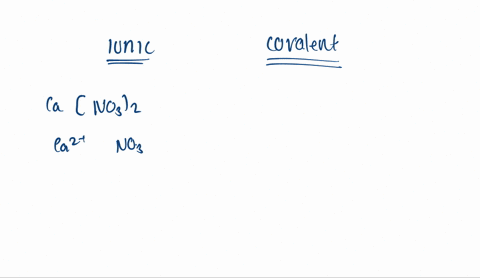 IONIC covalent
Ca (NO₃)₂
Ca²⁺ NO₃